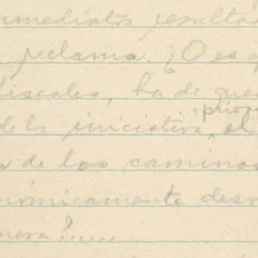 inmediatos resulta
reclama. ¿O es q
fiscales, ha de que
de la iniciativa priva el
a de los caminos
nómicamente des
nera?.....